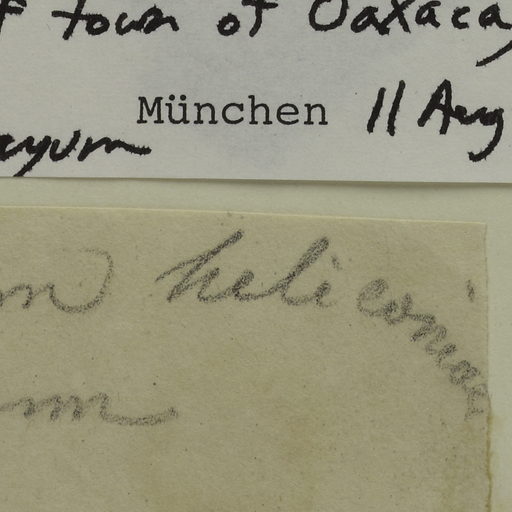 f town of Oaxaca,
München 11 Aug
ayum
m heliconiae
m